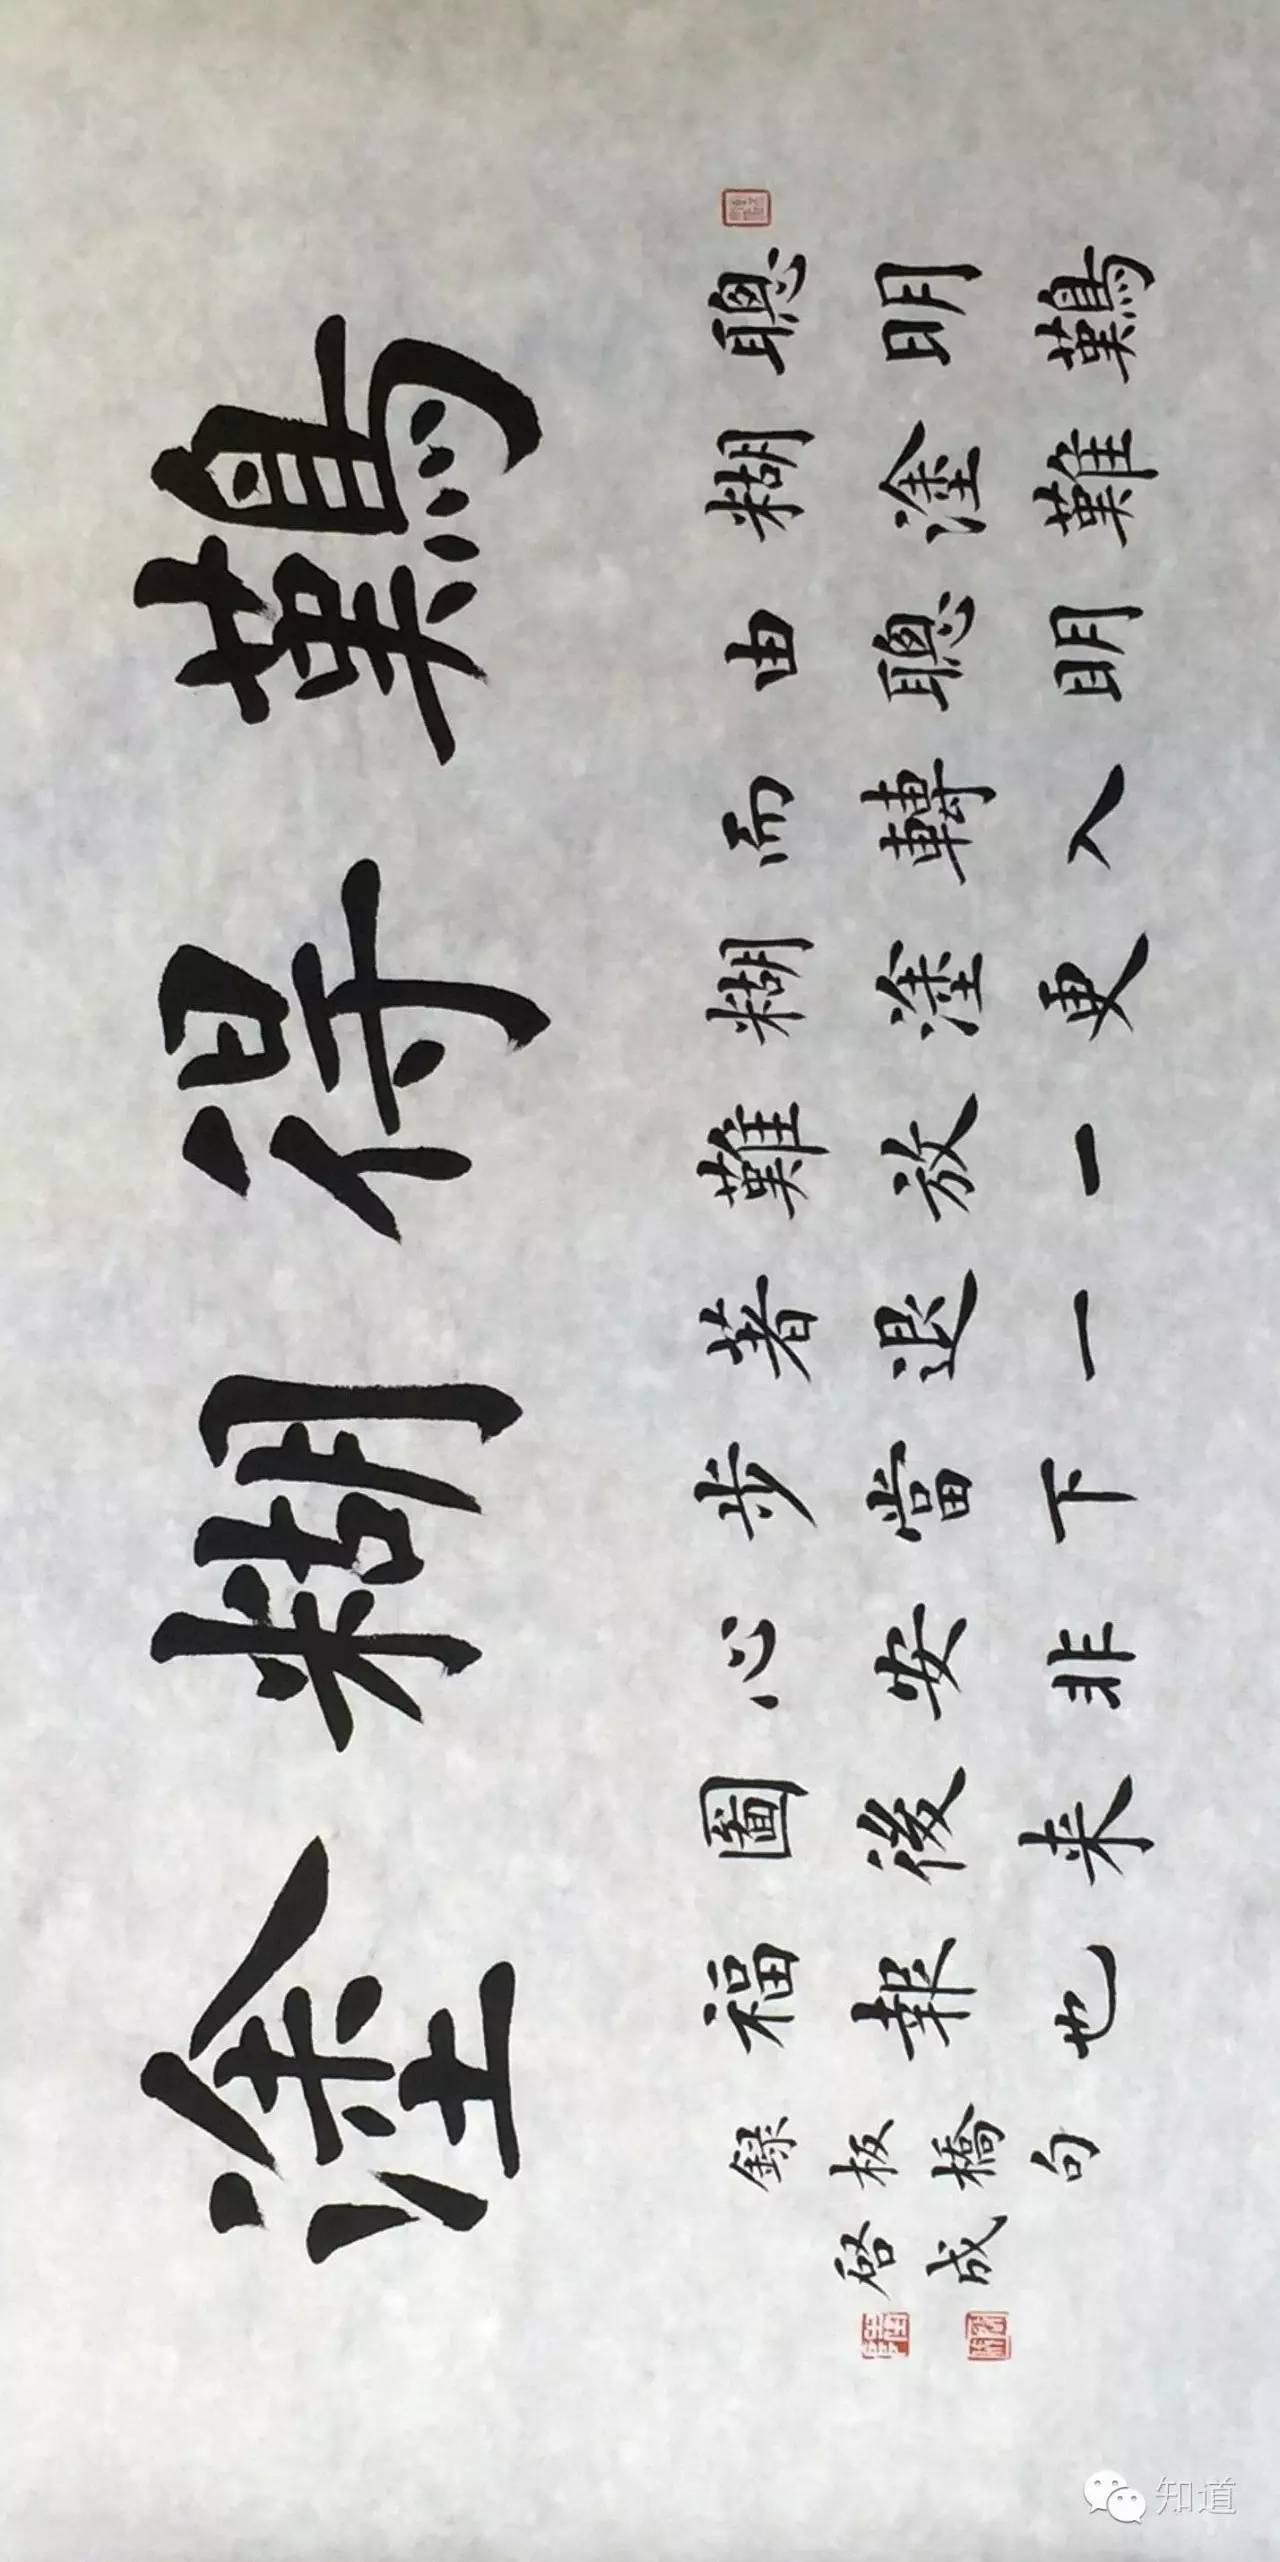 難得糊塗
聰明難
糊塗難
由聰明
而轉入
糊塗更
難放一
著退一
步當下
心安非
圖後来
福報也
録板橋句
啓成
知道